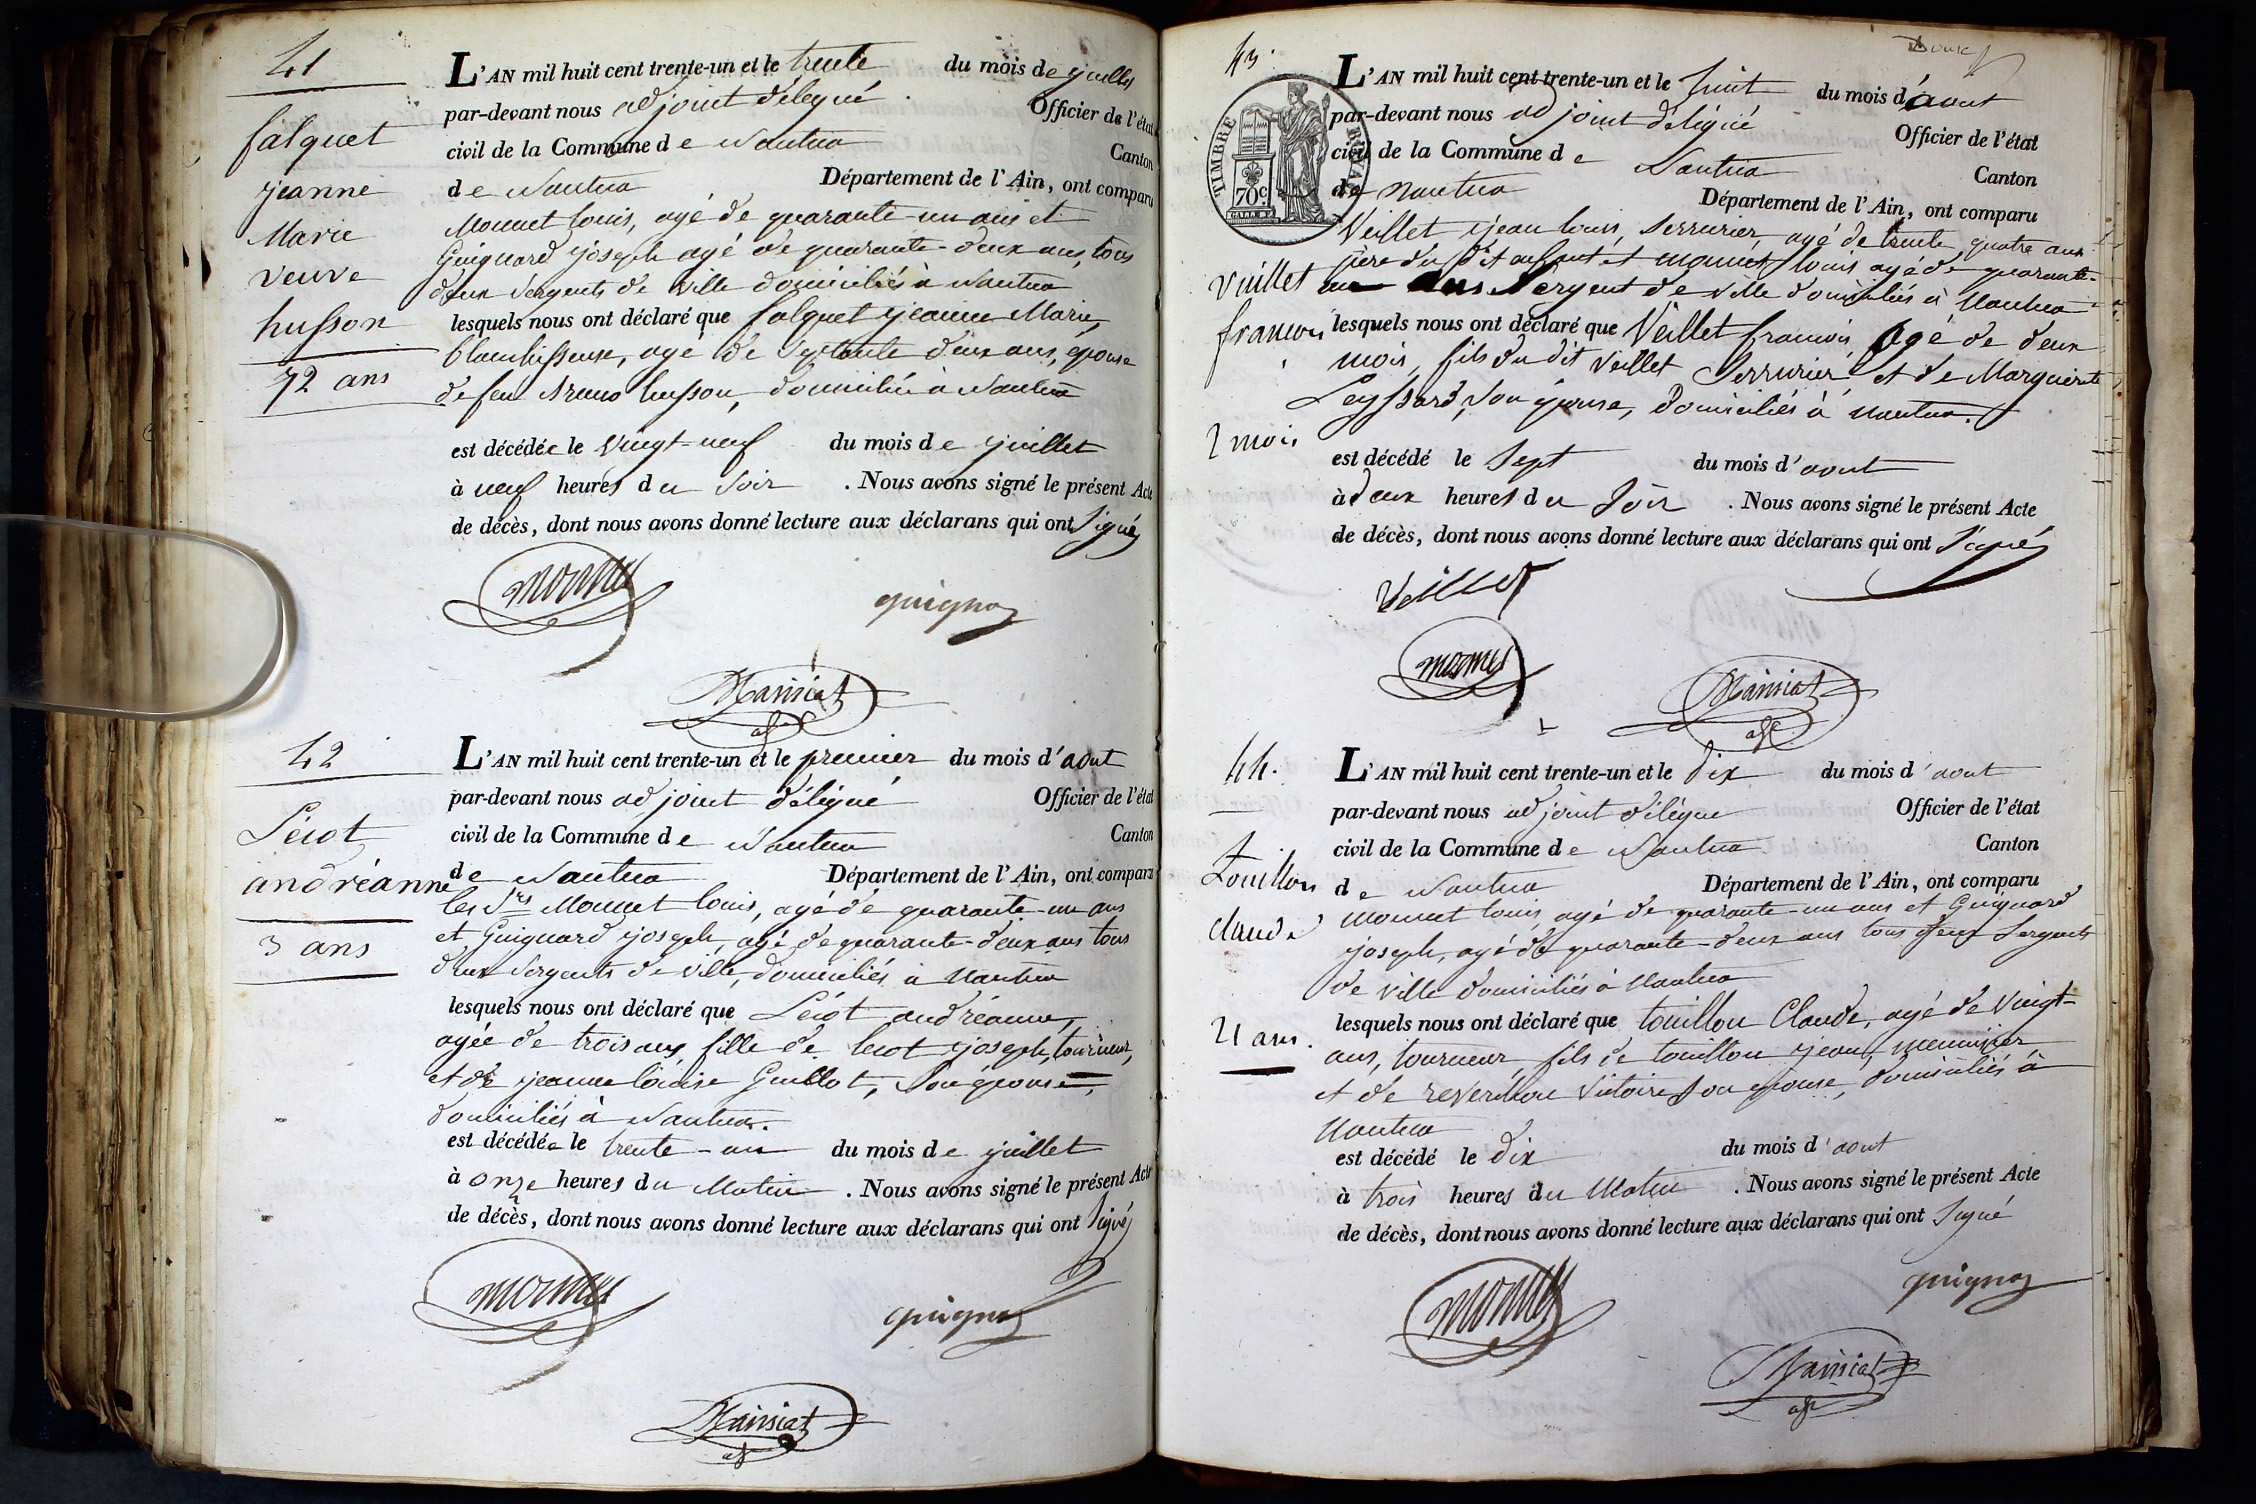 41
falquet
jeanne
Marie
veuve
husson
72 ans
L'AN mil huit cent trente-un et le trente du mois de juillet
par-devant nous adjoint délégué Officier de l'état
civil de la Commune de Nantua Canton
de Nantua Département de l'Ain, ont comparu
Monnet louis, agé de quarante-un ans et
Guignard joseph agé de quarante-deux ans, tous
deux Sergents de Ville domiciliés à Nantua
lesquels nous ont déclaré que falquet jeanne Marie,
blanchisseuse, agé de Septante deux ans, épouse
de feu husson, domiciliée à Nantua
est décédée le Vingt-neuf du mois de juillet
à neuf heures du Soir . Nous avons signé le présent Acte
de décès, dont nous avons donné lecture aux déclarans qui ont Signé
monnet
guignar
Mainiat
42
Lécot
andréanne
3 ans
L'AN mil huit cent trente-un et le premier du mois d'aout
par-devant nous adjoint délégué Officier de l'état
civil de la Commune de Nantua Canton
de Nantua Département de l'Ain, ont comparu
les Srs Monnet louis, agé de quarante-un ans
et Guignard joseph, agé de quarante-deux ans tous
deux Sergents de ville, domiciliés à Nantua
lesquels nous ont déclaré que Lécot andréanne,
agée de trois ans, fille de lecot joseph, tourneur,
et de jeanne loüise Guillot, Son épouse,
domiciliés à Nantua.
est décédée le trente-un du mois de juillet
à onze heures du Matin . Nous avons signé le présent Acte
de décès, dont nous avons donné lecture aux déclarans qui ont Signé
monnet
guignar
Mainiat
Douze
43.
TIMBRE ROYAL
70c
Veillet
francois
2 mois
L'AN mil huit cent trente-un et le huit du mois d'aout
par-devant nous adjoint délégué Officier de l'état
civil de la Commune de Nantua Canton
de Nantua Département de l'Ain, ont comparu
Veillet jean louis, Serrurier, agé de trente quatre ans
père du dit enfant et monnet louis agé de quarante-
un ans Sergent de Ville domiciliés à Nantua
lesquels nous ont déclaré que Veillet francois Agé de deux
mois, fils du dit Veillet Serrurier et de Marguerite
Leyssard, Son épouse, domiciliés à Nantua.
est décédé le Sept du mois d'aout
à deux heures du Soir . Nous avons signé le présent Acte
de décès, dont nous avons donné lecture aux déclarans qui ont Signé
Veillet
monnet
Mainiat
44.
Touillon
claude
21 ans.
L'AN mil huit cent trente-un et le dix du mois d'aout
par-devant nous adjoint délégué Officier de l'état
civil de la Commune de Nantua Canton
de Nantua Département de l'Ain, ont comparu
Monnet louis, agé de quarante-un ans et Guignard
joseph, agé de quarante-deux ans tous deux Sergents
de Ville domiciliés à Nantua
lesquels nous ont déclaré que touillon Claude, agé de Vingt-
ans, tourneur, fils de touillon jean, menuisier
et de reverchon Victoire Son épouse, domiciliés à
Nantua
est décédé le dix du mois d'aout
à trois heures du Matin . Nous avons signé le présent Acte
de décès, dont nous avons donné lecture aux déclarans qui ont Signé
guignar
monnet
Mainiat